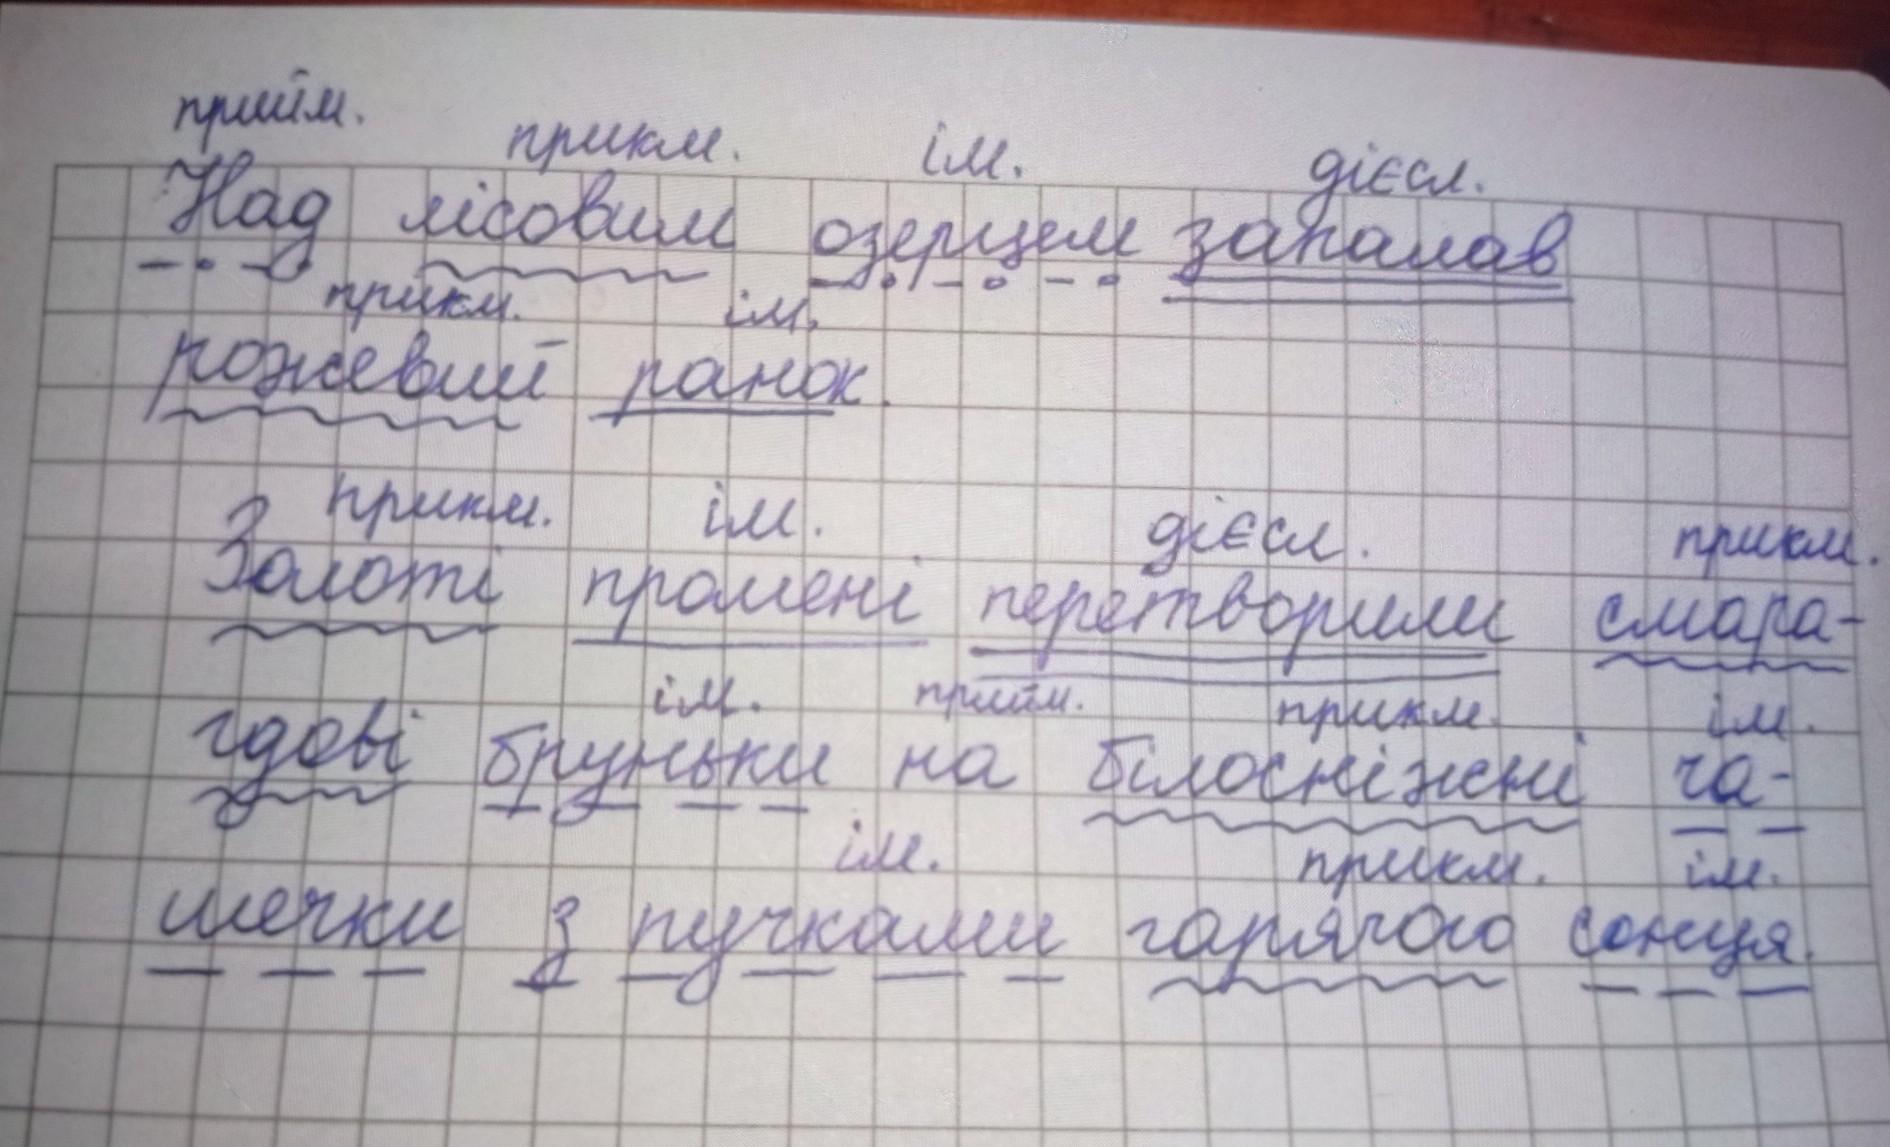 прийм. прикм. ім. дієсл.
Над лісовим озерцем запалав
прикм. ім.
рожевий ранок.
прикм. ім. дієсл. прикм.
Золоті промені перетворили смара-
ім. прийм. прикм. ім.
гдові бруньки на білосніжні ча-
ім. прикм. ім.
шечки з пучками гарячого сонця.